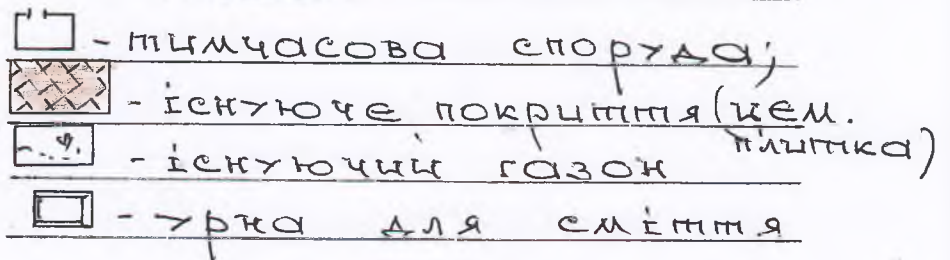 - тимчасова споруда;
- існуюче покриття (цем. плитка)
- існуючий газон
- урна для сміття